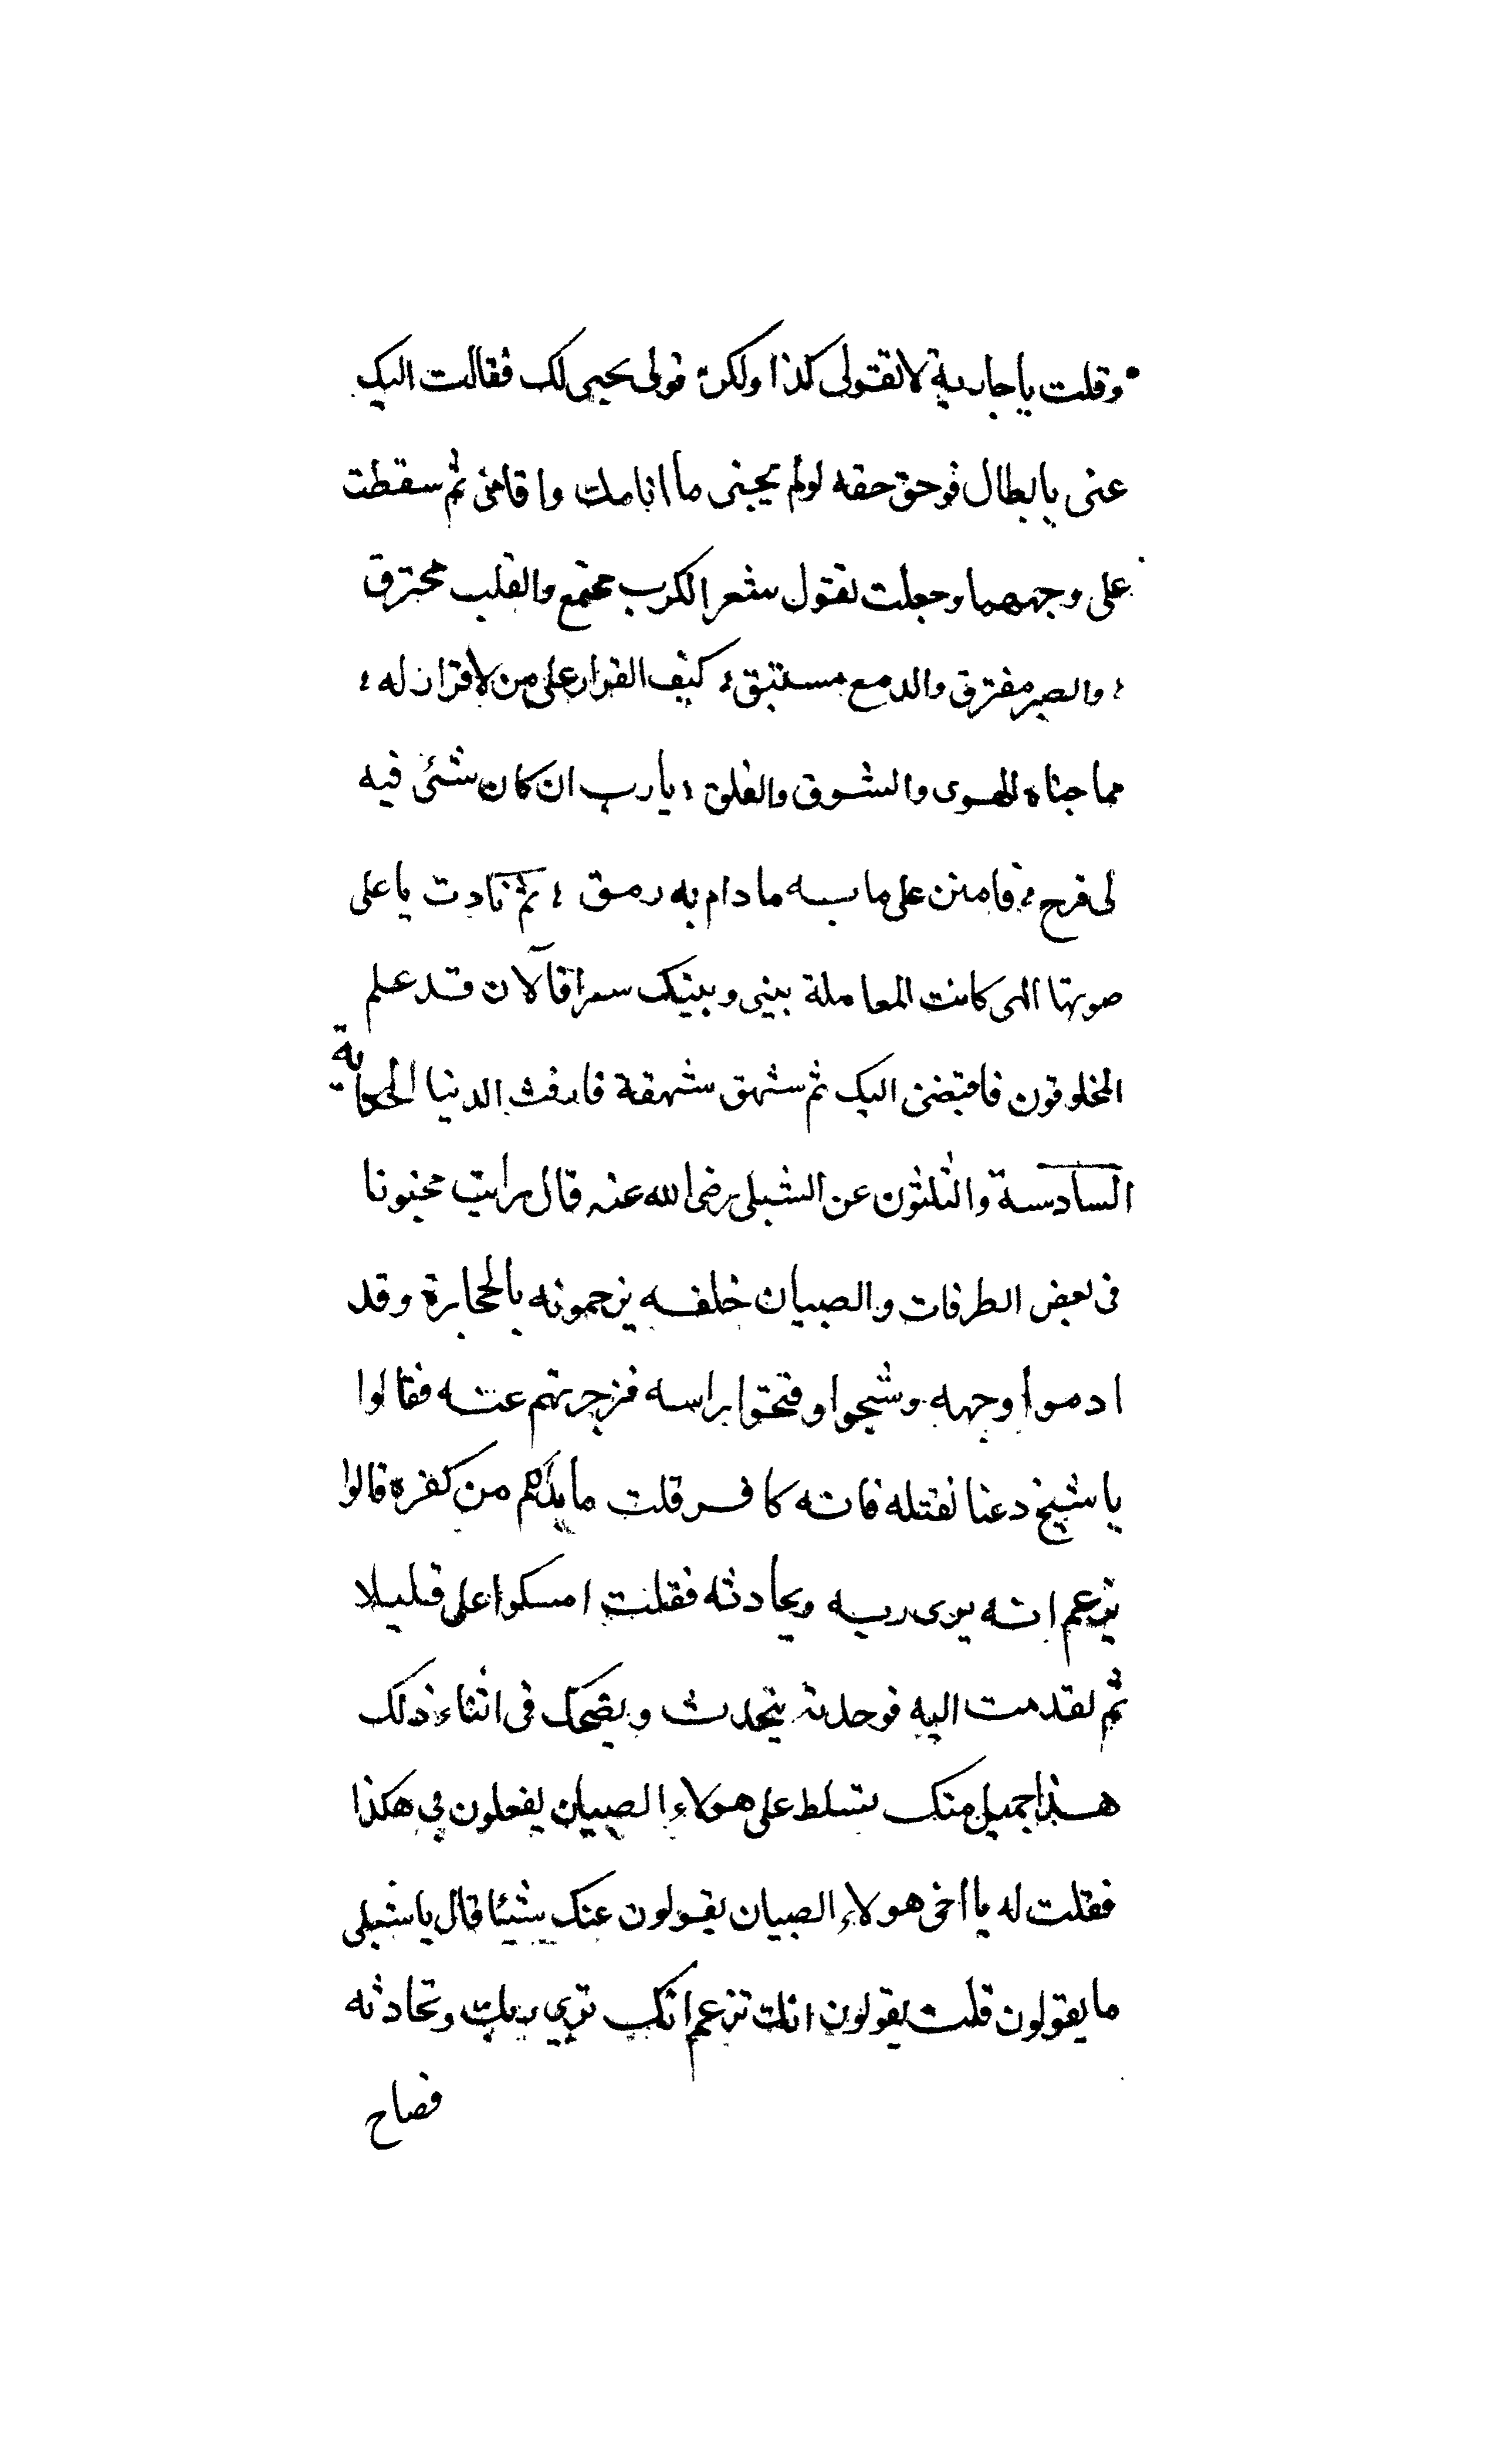 وقلت يا جارية لا تقولى كذا ولكن قولى بحبى لك فقالت اليك
عنى يا بطال فوحق حقه لو لم يحبنى ما انامك واقامنى ثم سقطت
على وجهها وجعلت تقول شعر الكرب مجتمع والقلب محترق
والصبر مفترق والدمع مستبق كيف القرار على من لا قرار له
مما جناه الهوى والشوق والقلق يا رب ان كان شئ فيه
لى فرح فامنن على ما به ما دام به رمق ثم نادت يا على
صوتها الهى كانت المعاملة بينى وبينك سرا فالآن قد علم
المخلوقون فاقبضنى اليك ثم شهق شهقة فارقت الدنيا الحكاية
السادسة والثلثون عن الشبلى رضى الله عنه قال رايت مجنونا
فى بعض الطرقات والصبيان خلفه يرجمونه بالحجارة وقد
ادموا وجهه وشجوا وفتحوا راسه فزجرتهم عنه فقالوا
يا شيخ دعنا نقتله فانه كافر قلت ما بدلكم من كفره قالوا
يزعم انه يرى ربه ويحادثه فقلت امسكوا على قليلا
ثم تقدمت اليه فوجدته يتحدث ويضحك فى اثناء ذلك
هذا جميل منك تسلط على هولاء الصبيان يفعلون بى هكذا
فقلت له يا اخى هولاء الصبيان يقولون عنك شيئا قال يا شبلى
ما يقولون قلت يقولون انك تزعم انك ترى ربك وتحادثه
فصاح